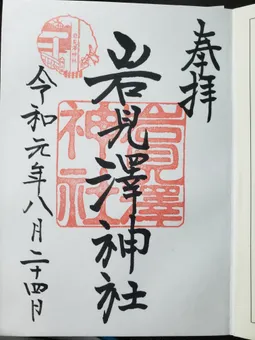 奉拝
岩見澤神社
岩見澤神社
令和元年八月二十四日